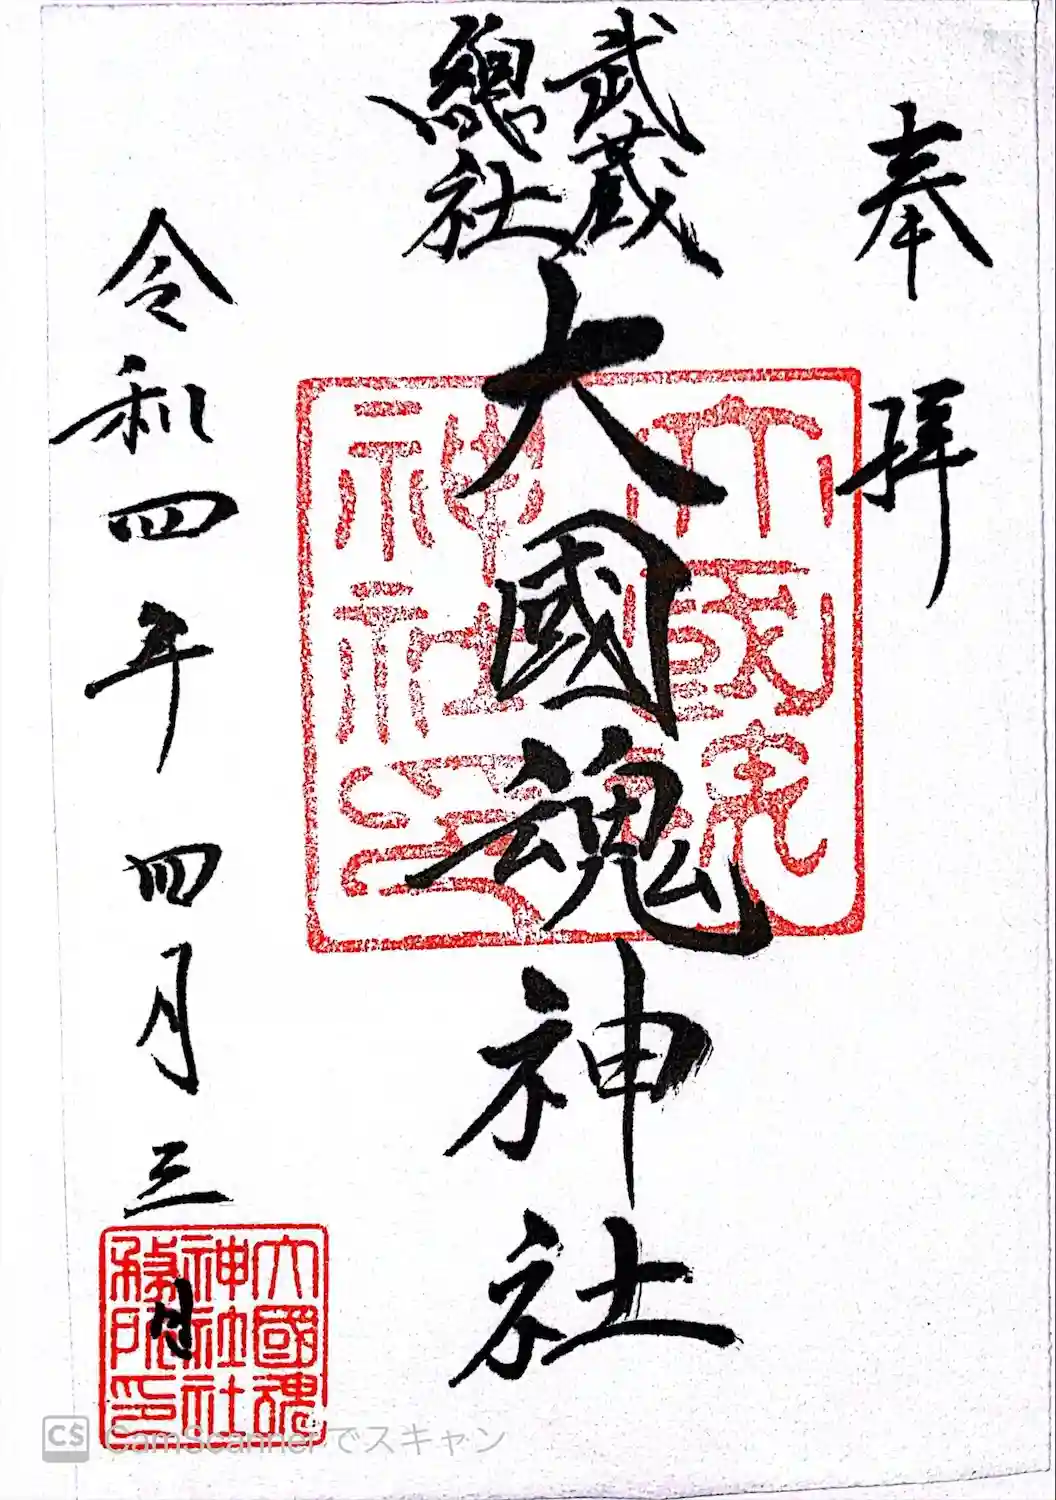 奉拝
武蔵
總社
大國魂神社
令和四年四月三日
大國魂
神社印
大國魂
神社社
務所印
CS CamScannerでスキャン